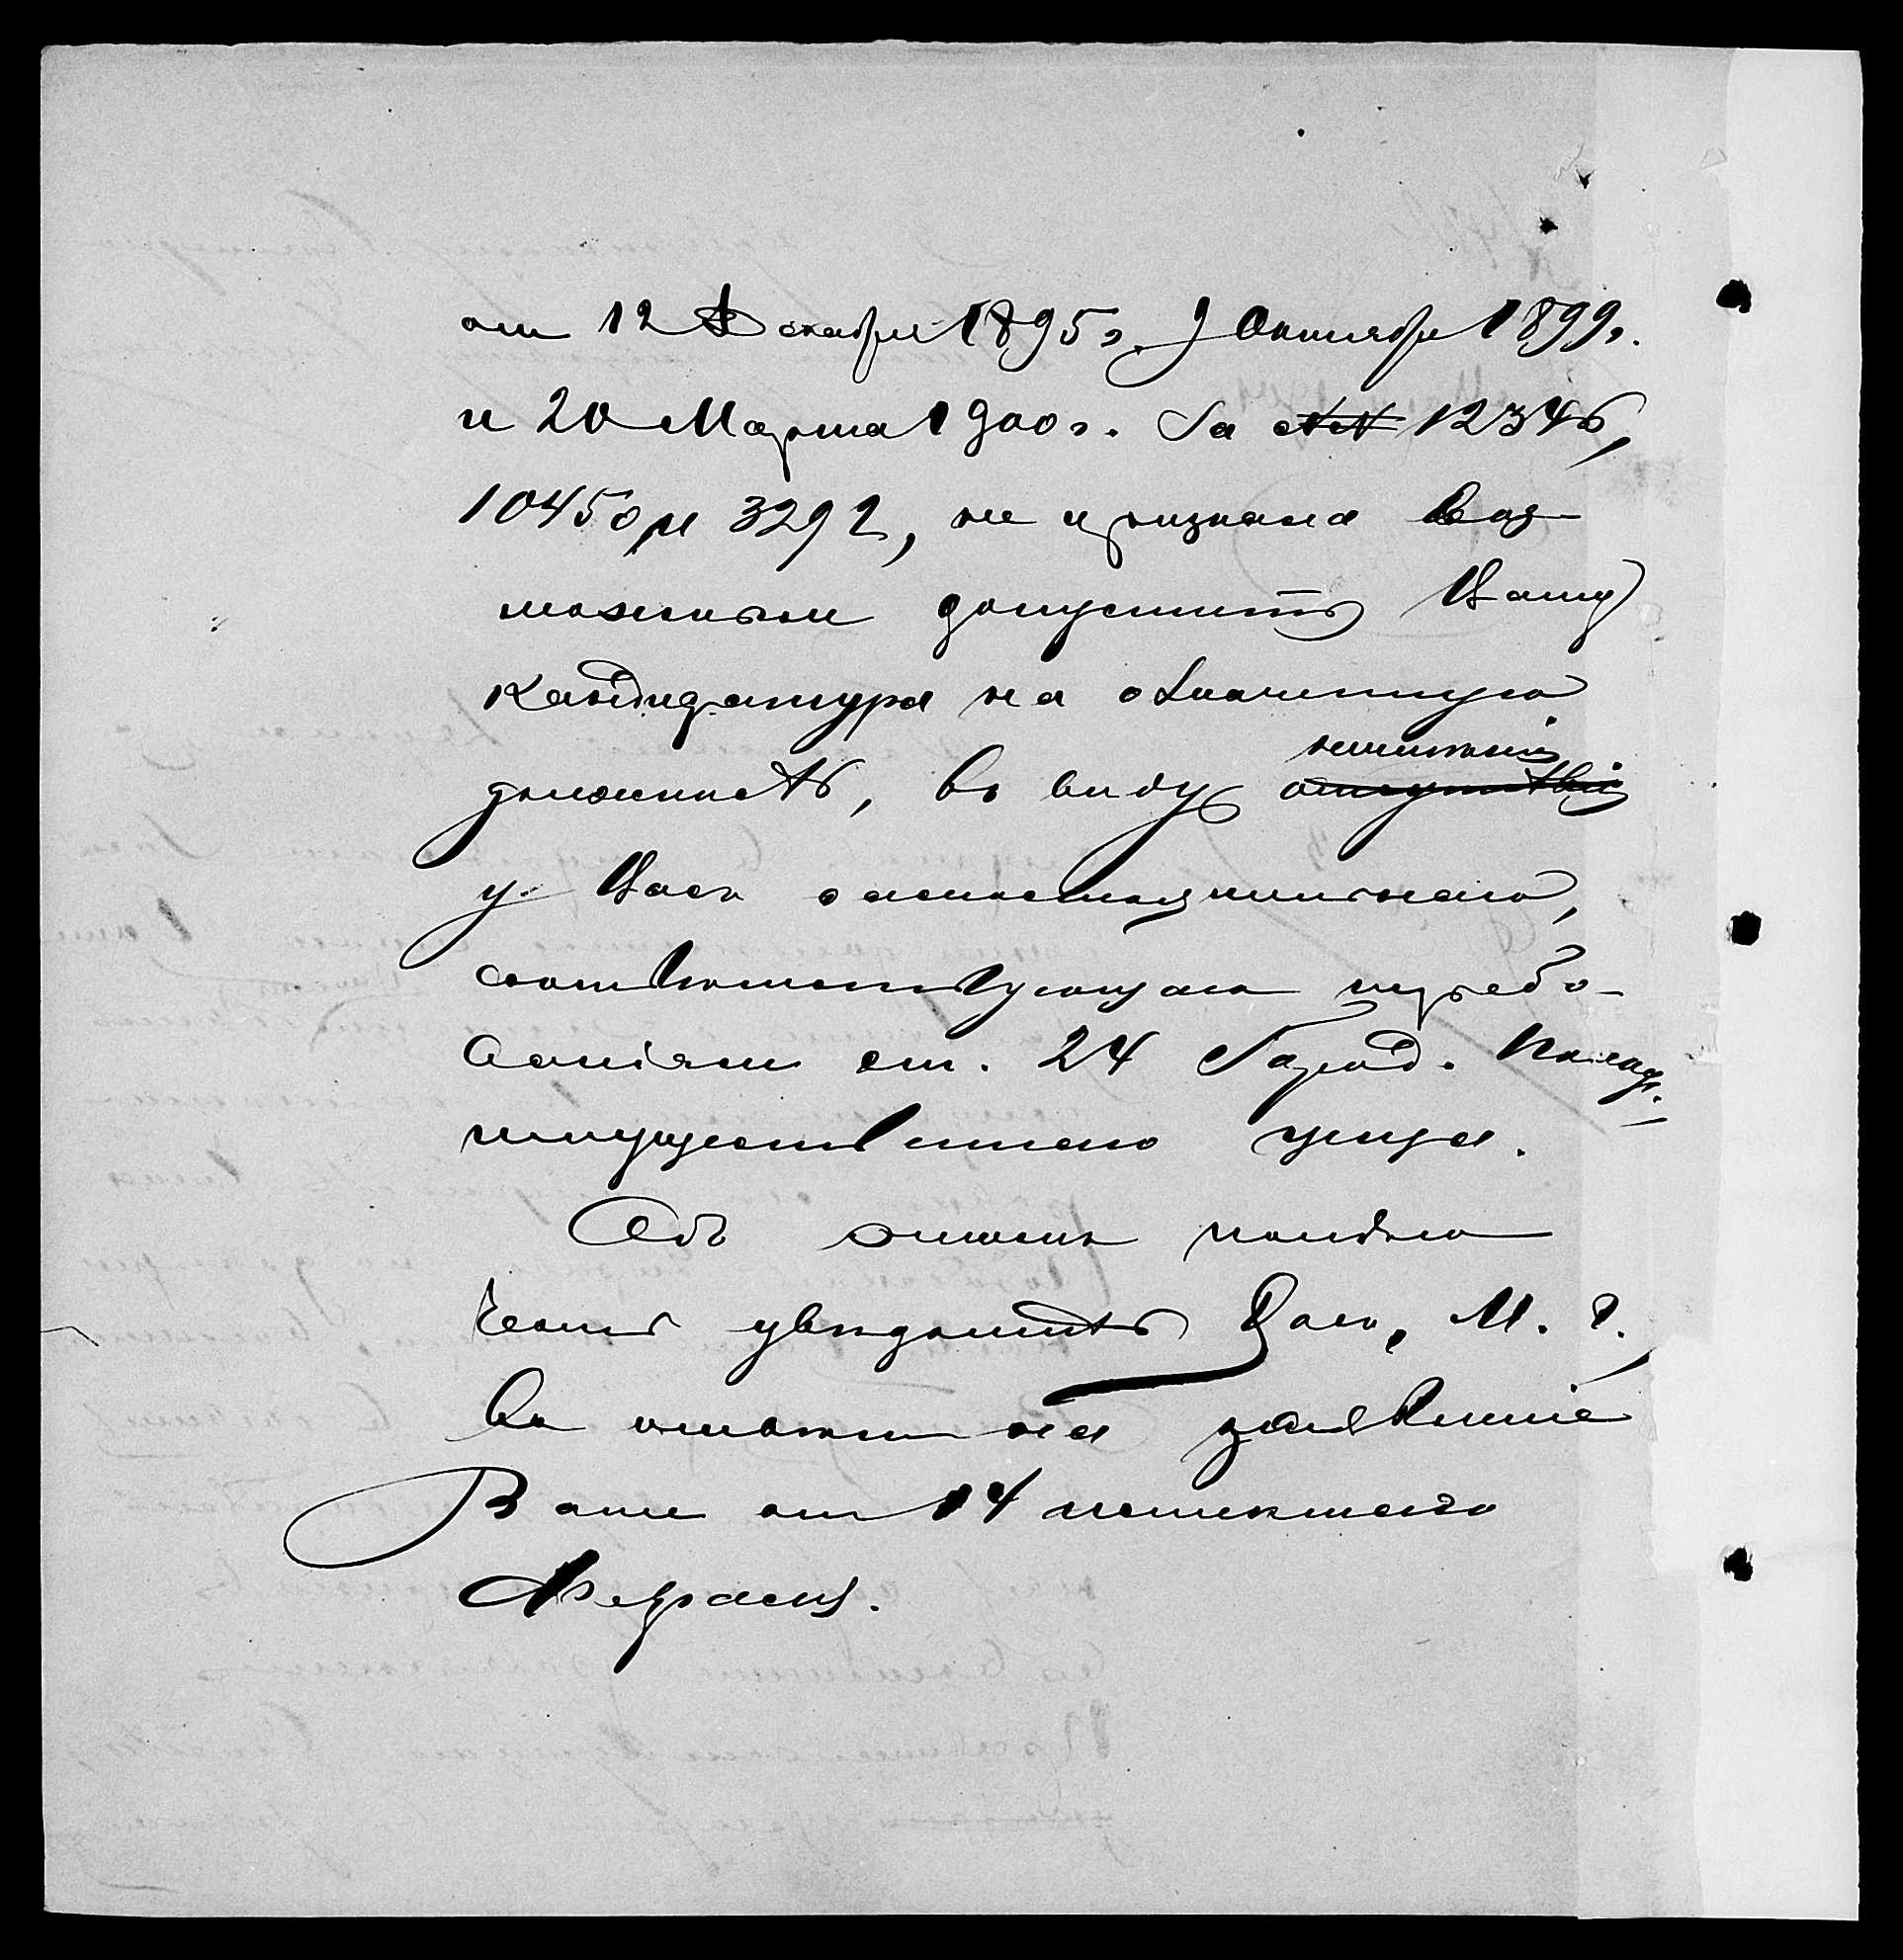 от 12 Декабря 1895 г., 9 Октября 1899 г.
и 20 Марта 1900 г. за №№ 12346,
10450 и 3292, не признана воз-
можным допустить Вашу
кандидатура на означенную
должность, въ виду отсутствія неимѣнія
у Васъ самостоятельнаго,
соотвѣтствующаго требо-
ваніямъ ст. 24 Город. Полож.
имущественнаго ценза.
Объ этомъ имѣю
честь увѣдомить Васъ, М. Г.,
въ отвѣтъ на заявленіе
Ваше от 14 истекшаго